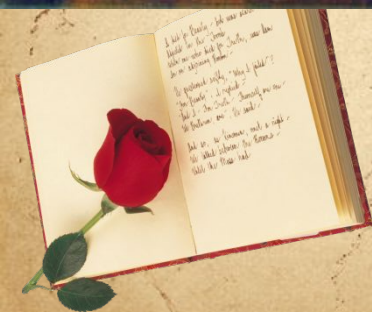 I died for Beauty - but was scarce
in the Tomb
When one who died for Truth, was lain
In an adjoining Room -
He questioned softly, "Why I failed"?
"For Beauty", I replied -
"And I - for Truth - Themself are One -
We Brethren, are", He said -
And so, as Kinsmen, met a Night -
We talked between the Rooms -
Until the Moss had